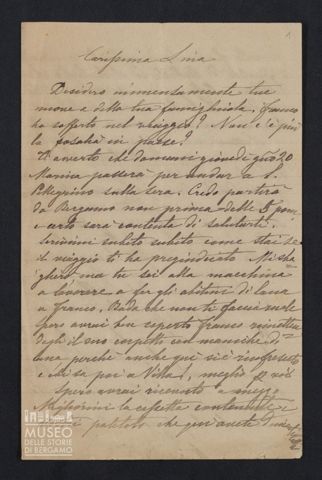 1
Carissima Lina
Desidero immensamente tue
nuove e della tua famigliuola. Franco
ha sofferto nel viaggio? Non c'è più
la rosalia in paese?
T'avverto che domani giovedì 20
Mamma passerà per andar a S.
Pellegrino sulla sera. Credo partirà
da Bergamo non prima delle 5 pom
e certo sarà contenta di salutarti.
Scrivimi subito subito come stai se
il viaggio ti ha pregiudicato. Mi sba
glierò ma tu sei alla macchina
a lavorare a far gli abitini di lana
a Franco. Bada che non ti faccia male
Spero avrai ben coperto Franco
il suo corpetto con maniche di
lana perchè anche qui si è rinfrescato
e chi sa poi a Villa!, meglio
Spero avrai ricevuto a mezzo
la cassetta contenente
che qui avete
MUSEO
DELLE STORIE
DI BERGAMO